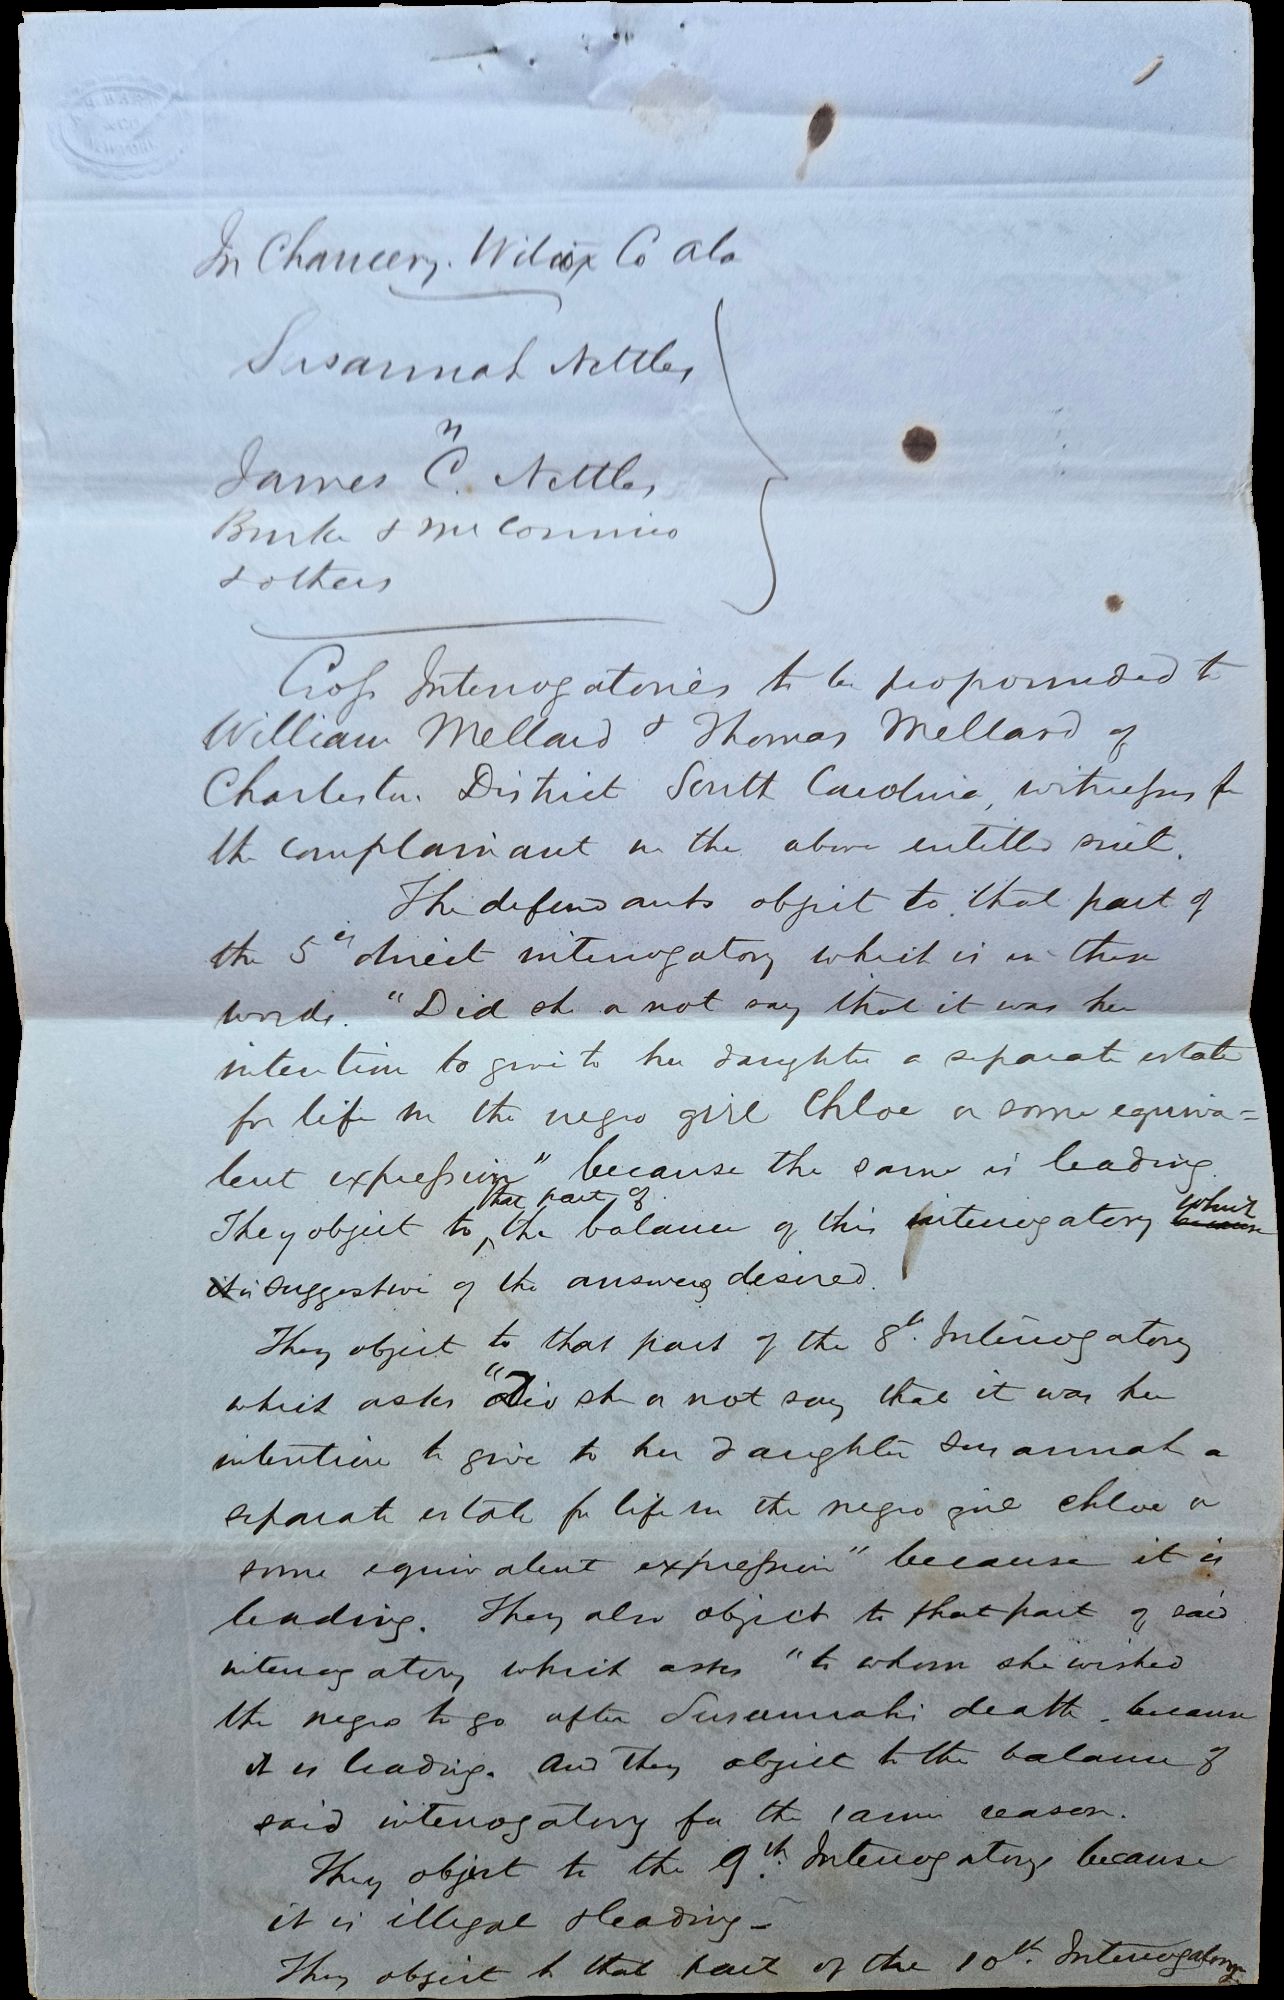 In Chancery. Wilcox Co Ala
Susannah Nettles
vs
James C. Nettles
Burke & McConnico
& others
Cross Interrogatories to be propounded to
William Mellard & Thomas Mellard of
Charleston District South Carolina, witnesses for
the complainant in the above entitled suit.
The defendants object to that part of
the 5th direct interrogatory which is in these
words. "Did she or not say that it was her
intention to give to her daughter a separate estate
for life in the negro girl Chloe or some equiva=
lent expression" because the same is leading.
that part of
They object to the balance of this interrogatory because which
it is suggestive of the answers desired.
They object to that part of the 8th Interrogatory
which asks "Did she or not say that it was her
intention to give to her daughter Susannah a
separate estate for life in the negro girl Chloe or
some equivalent expression" because it is
leading. They also object to that part of said
interrogatory which asks "to whom she wished
the negro to go after Susannah's death - because
it is leading. And they object to the balance of
said interrogatory for the same reason.
They object to the 9th Interrogatory because
it is illegal & leading -
They object to that part of the 10th Interrogatory